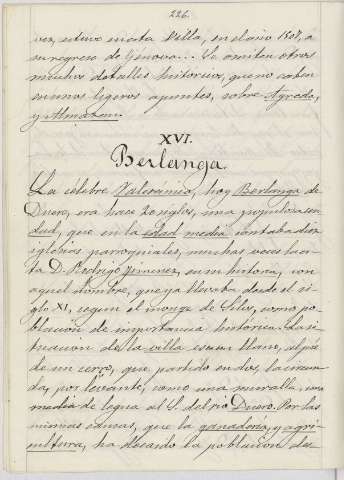 226.
vez, estuvo en esta Villa, en el año 1507, á
su regreso de Génova... Se omiten otros
muchos detalles historicos, que no caben
en unos ligeros apuntes, sobre Agreda,
y Almazan.
XVI.
Berlanga.
La célebre Valeránica, hoy Berlanga de
Duero, era hace 20 siglos, una populosa ciu
dad, que en la edad media contaba diez
iglesias parroquiales, muchas veces la ci
ta D. Rodrigo Ximenez, en su historia, con
aquel nombre, que ya llevaba desde el si-
glo XI, segun el monge de Silos, como po-
blacion de importancia historica. La si-
tuacion de la villa es un llano, al pié
de un cerro, que partido en dos, la circun
da, por levante, como una muralla, una
media de legua al S. del rio Duero. Por las
mismas causas, que la ganadería, y agri-
cultura, ha decaido la poblacion des